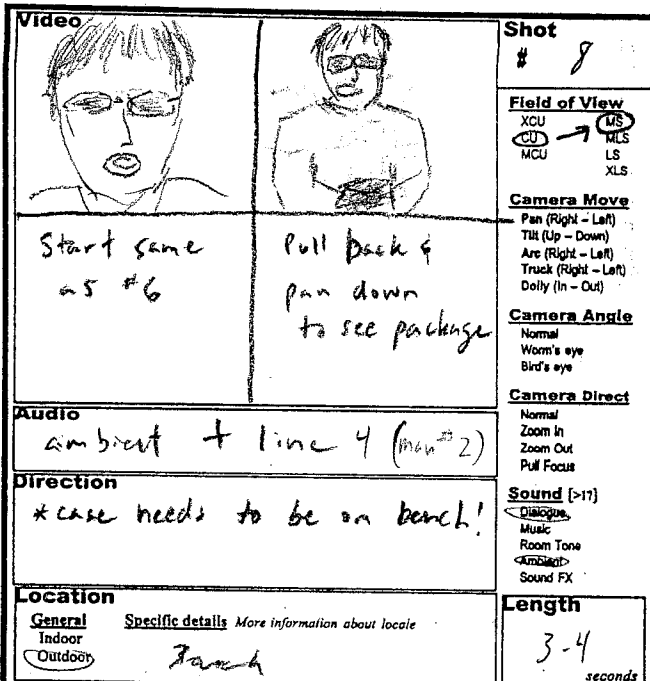 Video
Start same
as #6
Pull back &
pan down
to see package
Audio
ambient + line 4 (man #2)
Direction
*case needs to be on bench!
Location
General
Indoor
Outdoor
Specific details More information about locale
Shot
# 8
Field of View
XCU
CU
MCU
MS
MLS
LS
XLS
Camera Move
Pan (Right – Left)
Tilt (Up – Down)
Arc (Right – Left)
Truck (Right – Left)
Dolly (In – Out)
Camera Angle
Normal
Worm's eye
Bird's eye
Camera Direct
Normal
Zoom In
Zoom Out
Pull Focus
Sound [>17]
Dialogue
Music
Room Tone
Ambient
Sound FX
Length
3-4
seconds